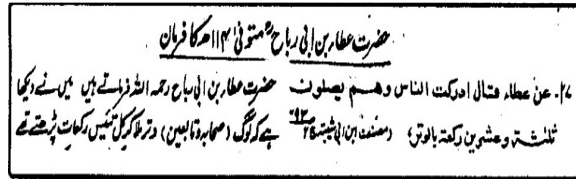 حضرت عطاء بن ابی رباحؒ متوفیٰ ۱۱۴ھ کا فرمان
۲۷۔ عن عطاء قال ادركت الناس وهم يصلون
ثلثة وعشرين ركعة بالوتر، (مصنف ابن ابی شیبة
حضرت عطار بن ابی رباح رحمہ اللہ فرماتے ہیں میں نے دیکھا
ہے کہ لوگ (صحابہ و تابعین) وتر ملا کر کل تئیس رکعات پڑھتے تھے